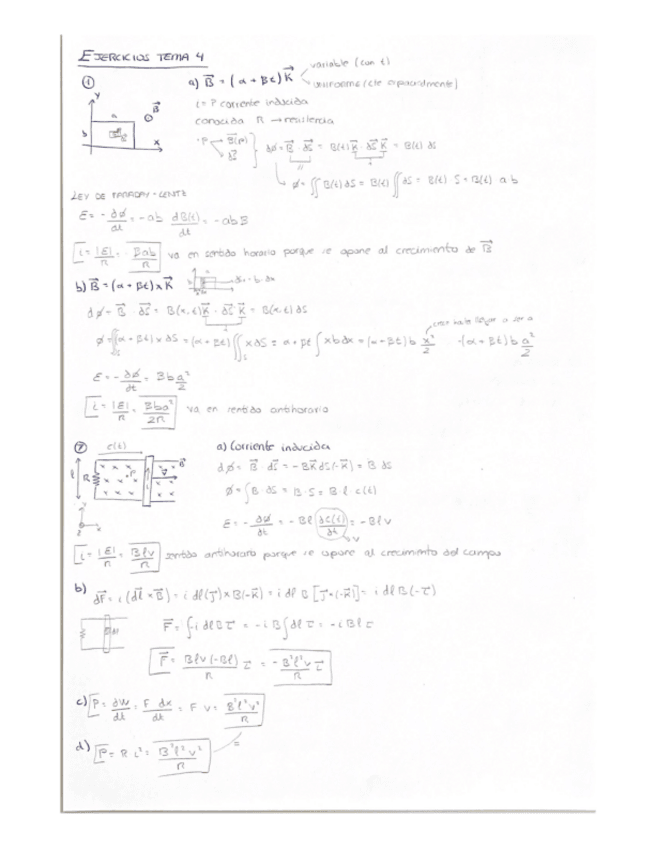 EJERCICIOS TEMA 4
① a) B⃗ = (α + βt) K⃗
variable (con t)
uniforme (cte espacialmente)
y
a
b
x
B⃗
i = ? corriente inducida
conocida R → resistencia
· P
B⃗(P)
dS⃗
dϕ = B⃗ · dS⃗ = B(t) K⃗ · dS K⃗ = B(t) dS
ϕ = ∬ B(t) dS = B(t) ∬ dS = B(t) S = B(t) a b
LEY DE FARADAY - LENTZ
E = - dϕ/dt = - ab dB(t)/dt = - abβ
i = |E|/R = βab/R va en sentido horario porque se opone al crecimiento de B⃗
b) B⃗ = (α + βt) x K⃗
dS = b · dx
dϕ = B⃗ · dS⃗ = B(x,t) K⃗ · dS K⃗ = B(x,t) dS
ϕ = ∬ (α + βt) x dS = (α + βt) ∬ x dS = α + βt ∫ x b dx = (α + βt) b x²/2 = (α + βt) b a²/2
E = - dϕ/dt = βb a²/2
i = |E|/R = βba²/2R va en sentido antihorario
⑦ c(t)
l R x x x x P v⃗ B⃗
y
z x
a) Corriente inducida
dϕ = B⃗ · dS⃗ = - BK⃗ dS(-K⃗) = B dS
ϕ = ∫ B · dS = B · S = B l · c(t)
E = - dϕ/dt = - Bl dc(t)/dt = - Blv
v
i = |E|/R = Blv/R sentido antihorario porque se opone al crecimiento del campo
b) dF⃗ = i (dl⃗ × B⃗) = i dl (J⃗) × B(-K⃗) = i dl B [J⃗ × (-K⃗)] = i dl B (-i⃗)
dl
F⃗ = ∫ -i dl B i⃗ = - i B ∫ dl i⃗ = - i B l i⃗
F⃗ = Blv (-Bl)/R i⃗ = - B²l²v/R i⃗
c) P = dW/dt = F dx/dt = F v = B²l²v²/R
d) P = R i² = B²l²v²/R
=